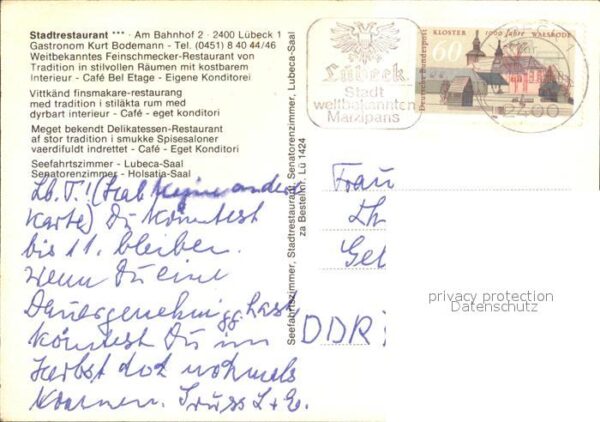 Stadtrestaurant *** · Am Bahnhof 2 · 2400 Lübeck 1
Gastronom Kurt Bodemann - Tel. (0451) 8 40 44/46
Weitbekanntes Feinschmecker-Restaurant von
Tradition in stilvollen Räumen mit kostbarem
Interieur - Café Bel Etage - Eigene Konditorei
Vittkänd finsmakare-restaurang
med tradition i stiläkta rum med
dyrbart interieur - Café - eget konditori
Meget bekendt Delikatessen-Restaurant
af stor tradition i smukke Spisesaloner
værdifuldt indrettet - Café - Eget Konditori
Seefahrtszimmer - Lubeca-Saal
Senatorenzimmer - Holsatia-Saal
Lb. T.! (Hab keine andere
Karte) Du könntest
bis 11. bleiben.
Wenn Du eine
Dauergenehmigg. hast
könntest Du im
Herbst doch nochmals
kommen. Gruss L + E.
Seefahrtszimmer, Stadtrestaurant, Senatorenzimmer, Lubeca-Saal
za Bestellnr. Lü 1424
Lübeck
Stadt
weltbekannten
Marzipans
Deutsche Bundespost
60
KLOSTER 1000 Jahre WALSRODE
2400
Frau
Th
Get
DDR
privacy protection
Datenschutz